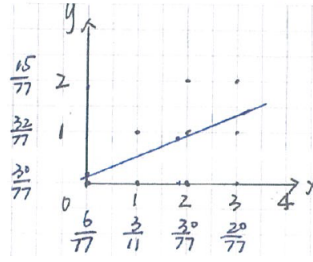 y
15/77 2
32/77 1
30/77
0 1 2 3 4
6/77 3/11 30/77 20/77